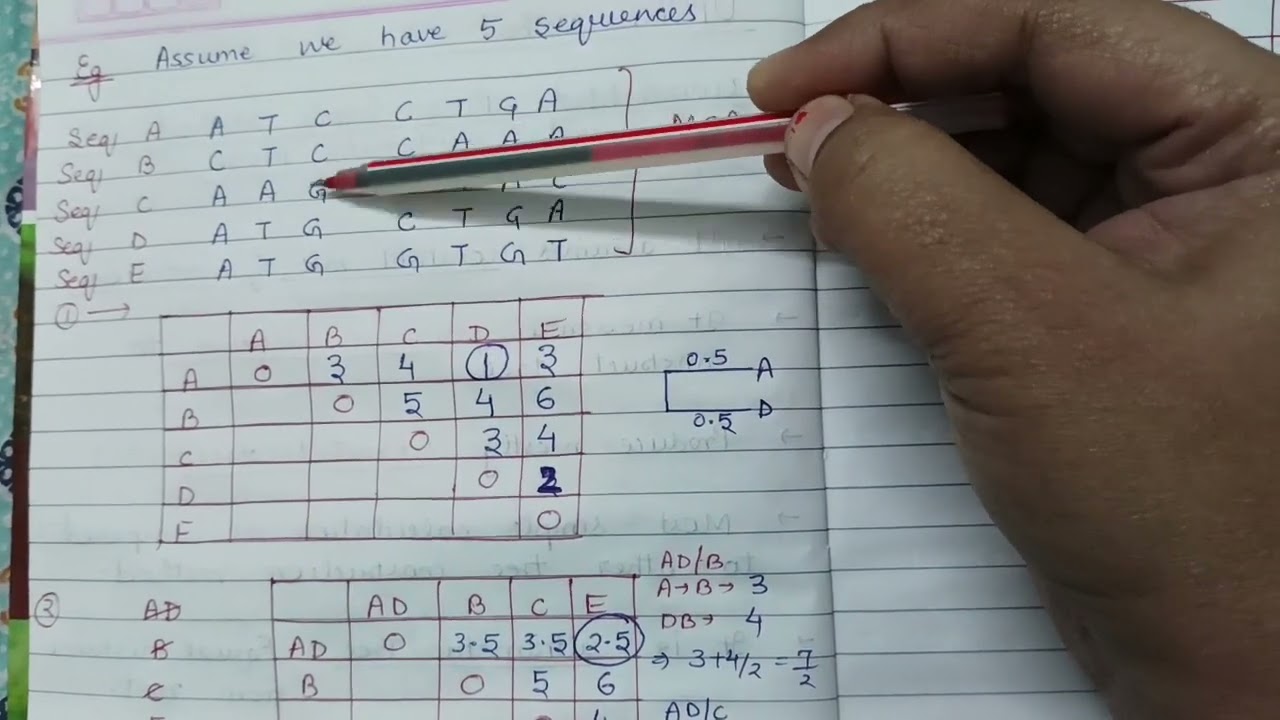 Eg Assume we have 5 sequences
Seq A A T C C T G A
Seq B C T C C A A A
Seq C A A G
Seq D A T G C T G A
Seq E A T G G T G T
① →
A B C D E
A 0 3 4 1 3
B 0 5 4 6
C 0 3 4
D 0 2
E 0
0.5 A
0.5 D
②
AD B C E
AD 0 3.5 3.5 2.5
B 0 5 6
AD
B
C
AD/B
A→B→ 3
DB→ 4
⇒ 3+4/2 = 7/2
AD/C